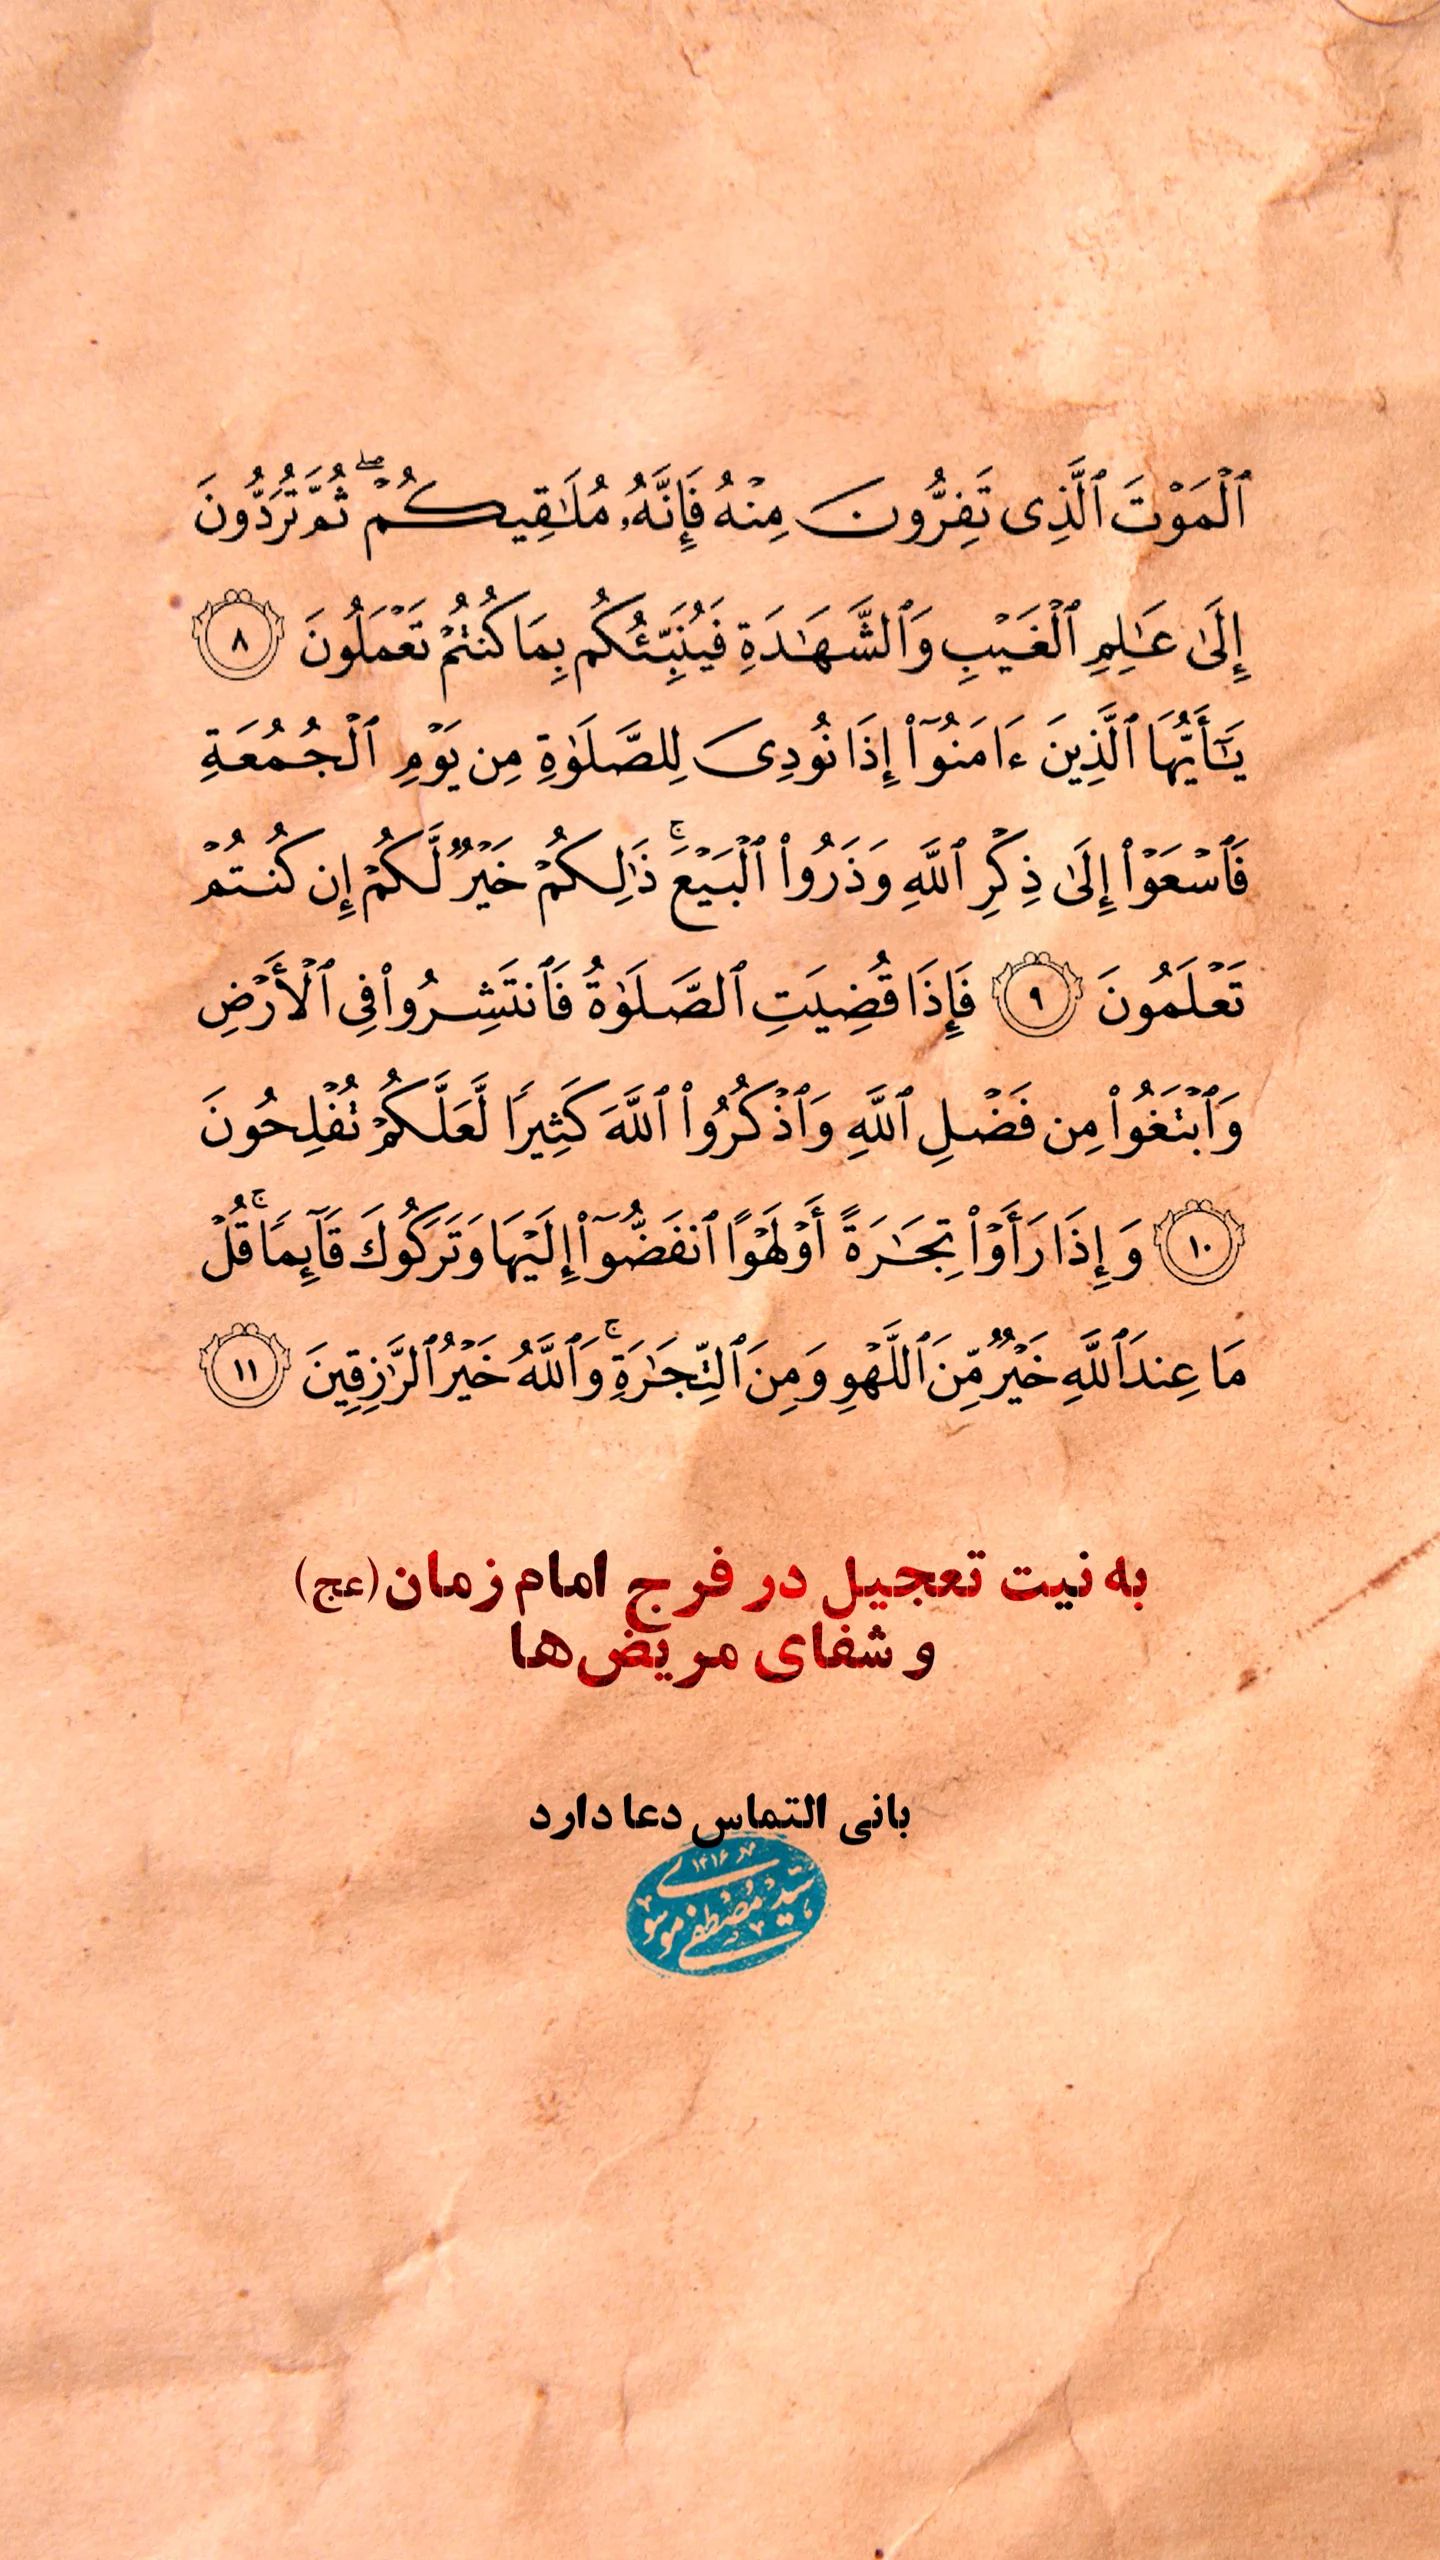 ٱلْمَوْتَ ٱلَّذِى تَفِرُّونَ مِنْهُ فَإِنَّهُۥ مُلَـٰقِيكُمْ ۖ ثُمَّ تُرَدُّونَ
إِلَىٰ عَـٰلِمِ ٱلْغَيْبِ وَٱلشَّهَـٰدَةِ فَيُنَبِّئُكُم بِمَا كُنتُمْ تَعْمَلُونَ ٨
يَـٰٓأَيُّهَا ٱلَّذِينَ ءَامَنُوٓا۟ إِذَا نُودِىَ لِلصَّلَوٰةِ مِن يَوْمِ ٱلْجُمُعَةِ
فَٱسْعَوْا۟ إِلَىٰ ذِكْرِ ٱللَّهِ وَذَرُوا۟ ٱلْبَيْعَ ۚ ذَٰلِكُمْ خَيْرٌ لَّكُمْ إِن كُنتُمْ
تَعْلَمُونَ ٩ فَإِذَا قُضِيَتِ ٱلصَّلَوٰةُ فَٱنتَشِرُوا۟ فِى ٱلْأَرْضِ
وَٱبْتَغُوا۟ مِن فَضْلِ ٱللَّهِ وَٱذْكُرُوا۟ ٱللَّهَ كَثِيرًا لَّعَلَّكُمْ تُفْلِحُونَ
١٠ وَإِذَا رَأَوْا۟ تِجَـٰرَةً أَوْ لَهْوًا ٱنفَضُّوٓا۟ إِلَيْهَا وَتَرَكُوكَ قَآئِمًا ۚ قُلْ
مَا عِندَ ٱللَّهِ خَيْرٌ مِّنَ ٱللَّهْوِ وَمِنَ ٱلتِّجَـٰرَةِ ۚ وَٱللَّهُ خَيْرُ ٱلرَّٰزِقِينَ ١١
به نیت تعجیل در فرج امام زمان(عج)
و شفای مریض‌ها
بانی التماس دعا دارد
۱۴۱۶
سید مصطفی موسوی